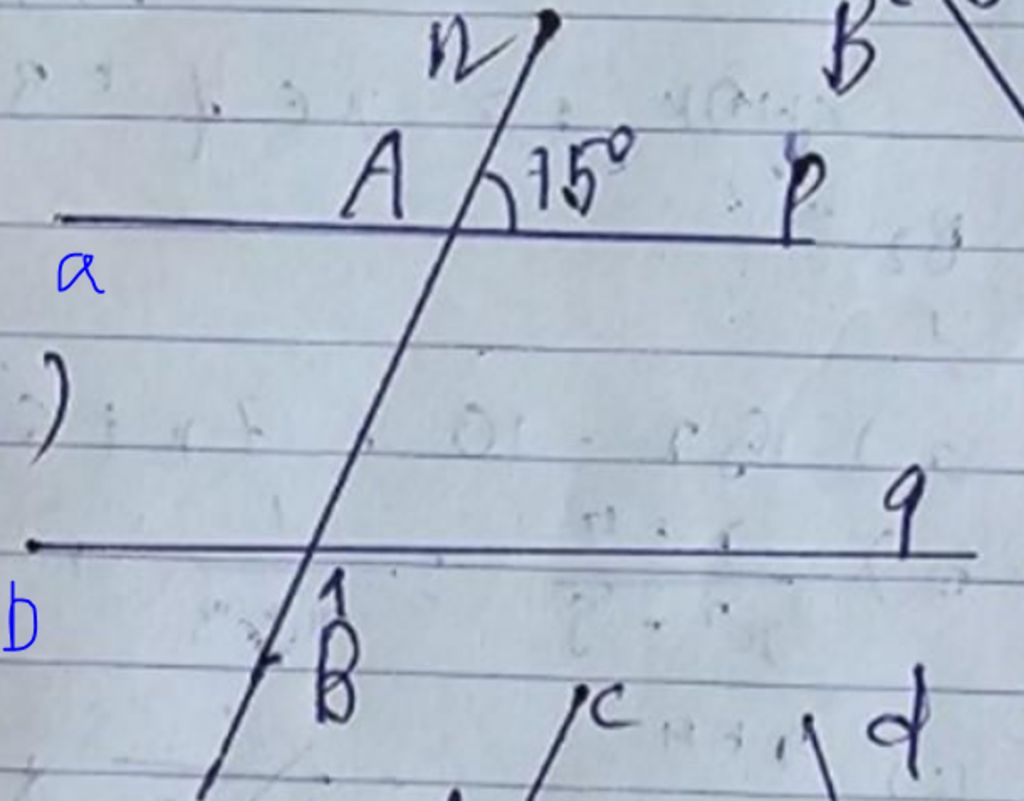 n
B
A 75° P
a
)
q
b
1
B
c
d